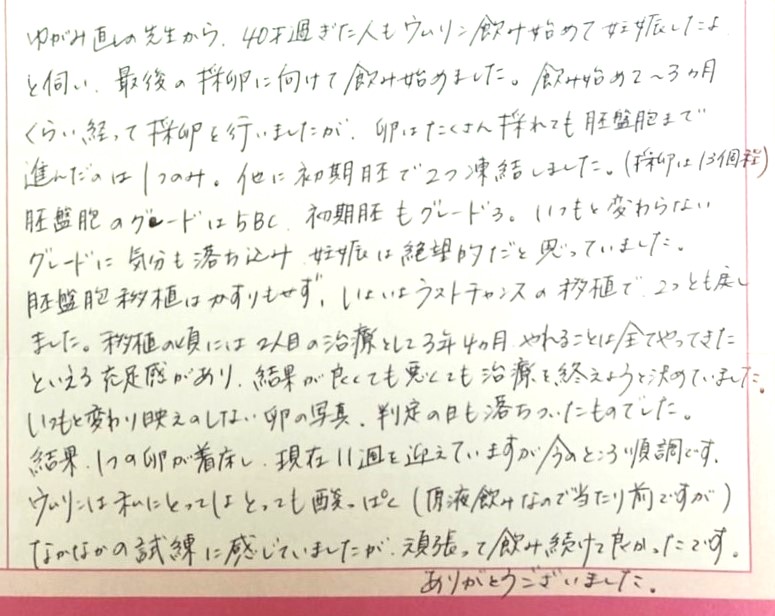 ゆがみ直しの先生から、40才過ぎた人もウムリン飲み始めて妊娠したよ
と伺い、最後の採卵に向けて飲み始めました。飲み始めて~3ヶ月
くらい経って採卵を行いましたが、卵はたくさん採れても胚盤胞まで
進んだのは1つのみ。他に初期胚で2つ凍結しました。(採卵は13個程)
胚盤胞のグレードは5BC、初期胚もグレード3。いつもと変わらない
グレードに気分も落ち込み、妊娠は絶望的だと思っていました。
胚盤胞移植はかすりもせず、いよいよラストチャンスの移植で、2つとも戻し
ました。移植の頃には2人目の治療として3年4ヵ月、やれることは全てやってきた
といえる充足感があり、結果が良くても悪くても治療を終えようと決めていました。
いつもと変わり映えのしない卵の写真、判定の日も落ちついたものでした。
結果、1つの卵が着床し、現在11週を迎えていますが今のところ順調です。
ウムリンは私にとってはとっても酸っぱく(原液飲みなので当たり前ですが)
なかなかの試練に感じていましたが、頑張って飲み続けて良かったです。
ありがとうございました。